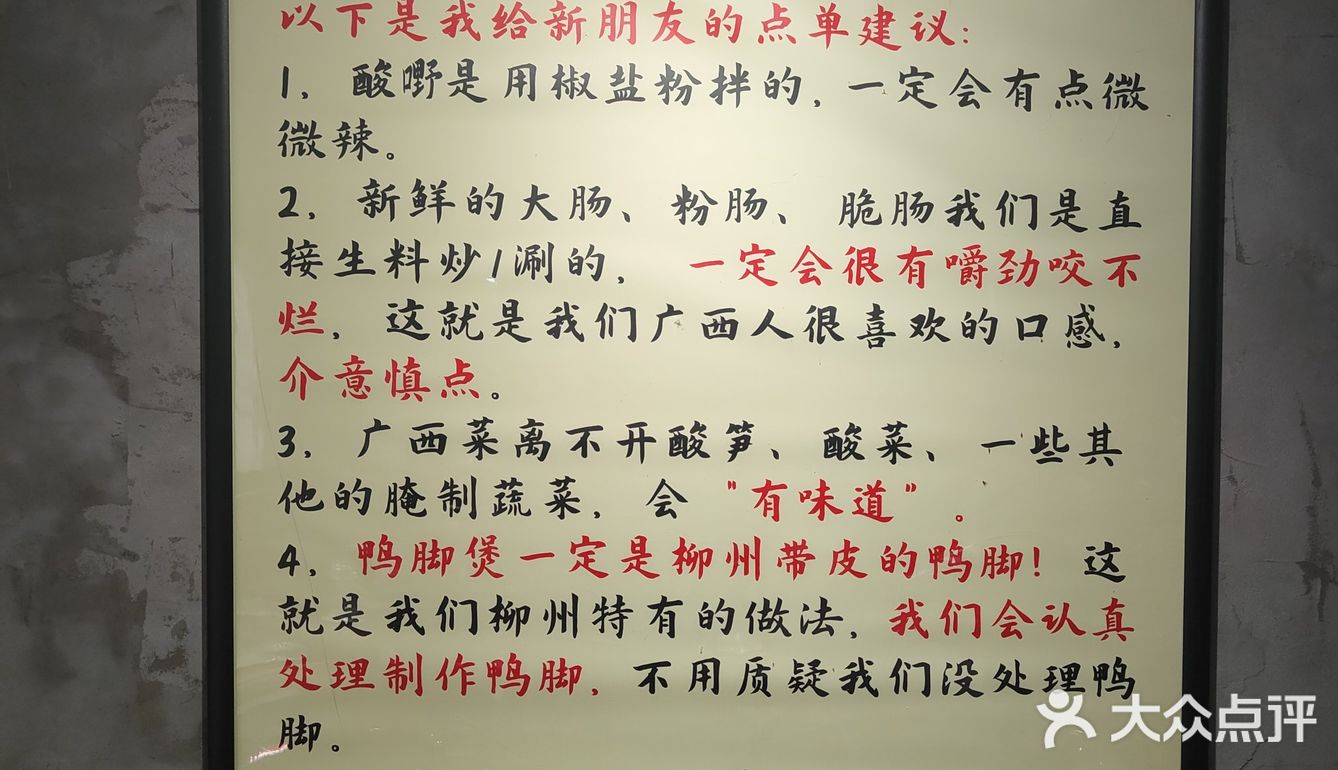 以下是我给新朋友的点单建议:
1, 酸嘢是用椒盐粉拌的, 一定会有点微
微辣。
2, 新鲜的大肠、粉肠、脆肠我们是直
接生料炒/涮的, 一定会很有嚼劲咬不
烂, 这就是我们广西人很喜欢的口感,
介意慎点。
3, 广西菜离不开酸笋、酸菜、一些其
他的腌制蔬菜, 会"有味道"。
4, 鸭脚煲一定是柳州带皮的鸭脚! 这
就是我们柳州特有的做法, 我们会认真
处理制作鸭脚, 不用质疑我们没处理鸭
脚。
大众点评